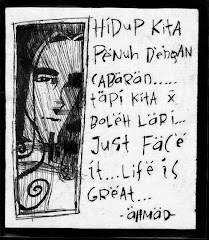 HiDUP KiTA
PéNUH DéNGAN
CABARAN.....
TäPi KiTA X
BOLéH LARi...
JUST FACé
it...Lifé iS
GRéAT...
-äHMAD-